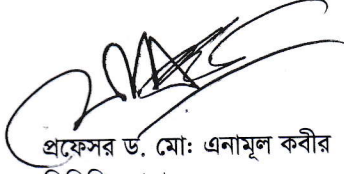 প্রফেসর ড. মো: এনামূল কবীর